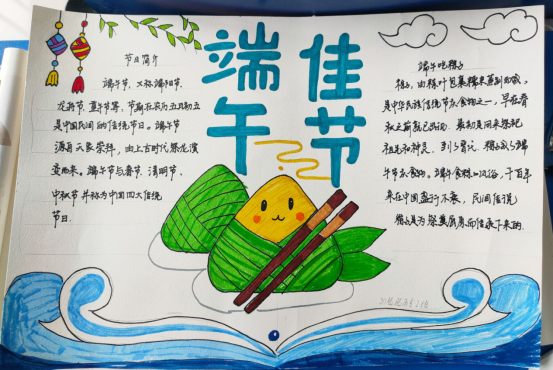 端午佳节
节日简介
端午节，又称端阳节、
龙舟节、重午节，节期在农历五月初五
是中国民间的传统节日。端午节
源自天象崇拜，由上古时代祭龙演
变而来。端午节与春节、清明节、
中秋节并称为中国四大传统
节日.
端午吃粽子
粽子，由粽叶包裹糯米蒸制而成，
是中华民族传统节庆食物之一，早在春
秋之前就已出现，最初是用来祭祀
祖先和神灵，到了晋代，粽子成了端
午节庆食物。端午食粽的风俗，千百年
来在中国盛行不衰，民间传说
粽子是为祭奠屈原而传承下来的.